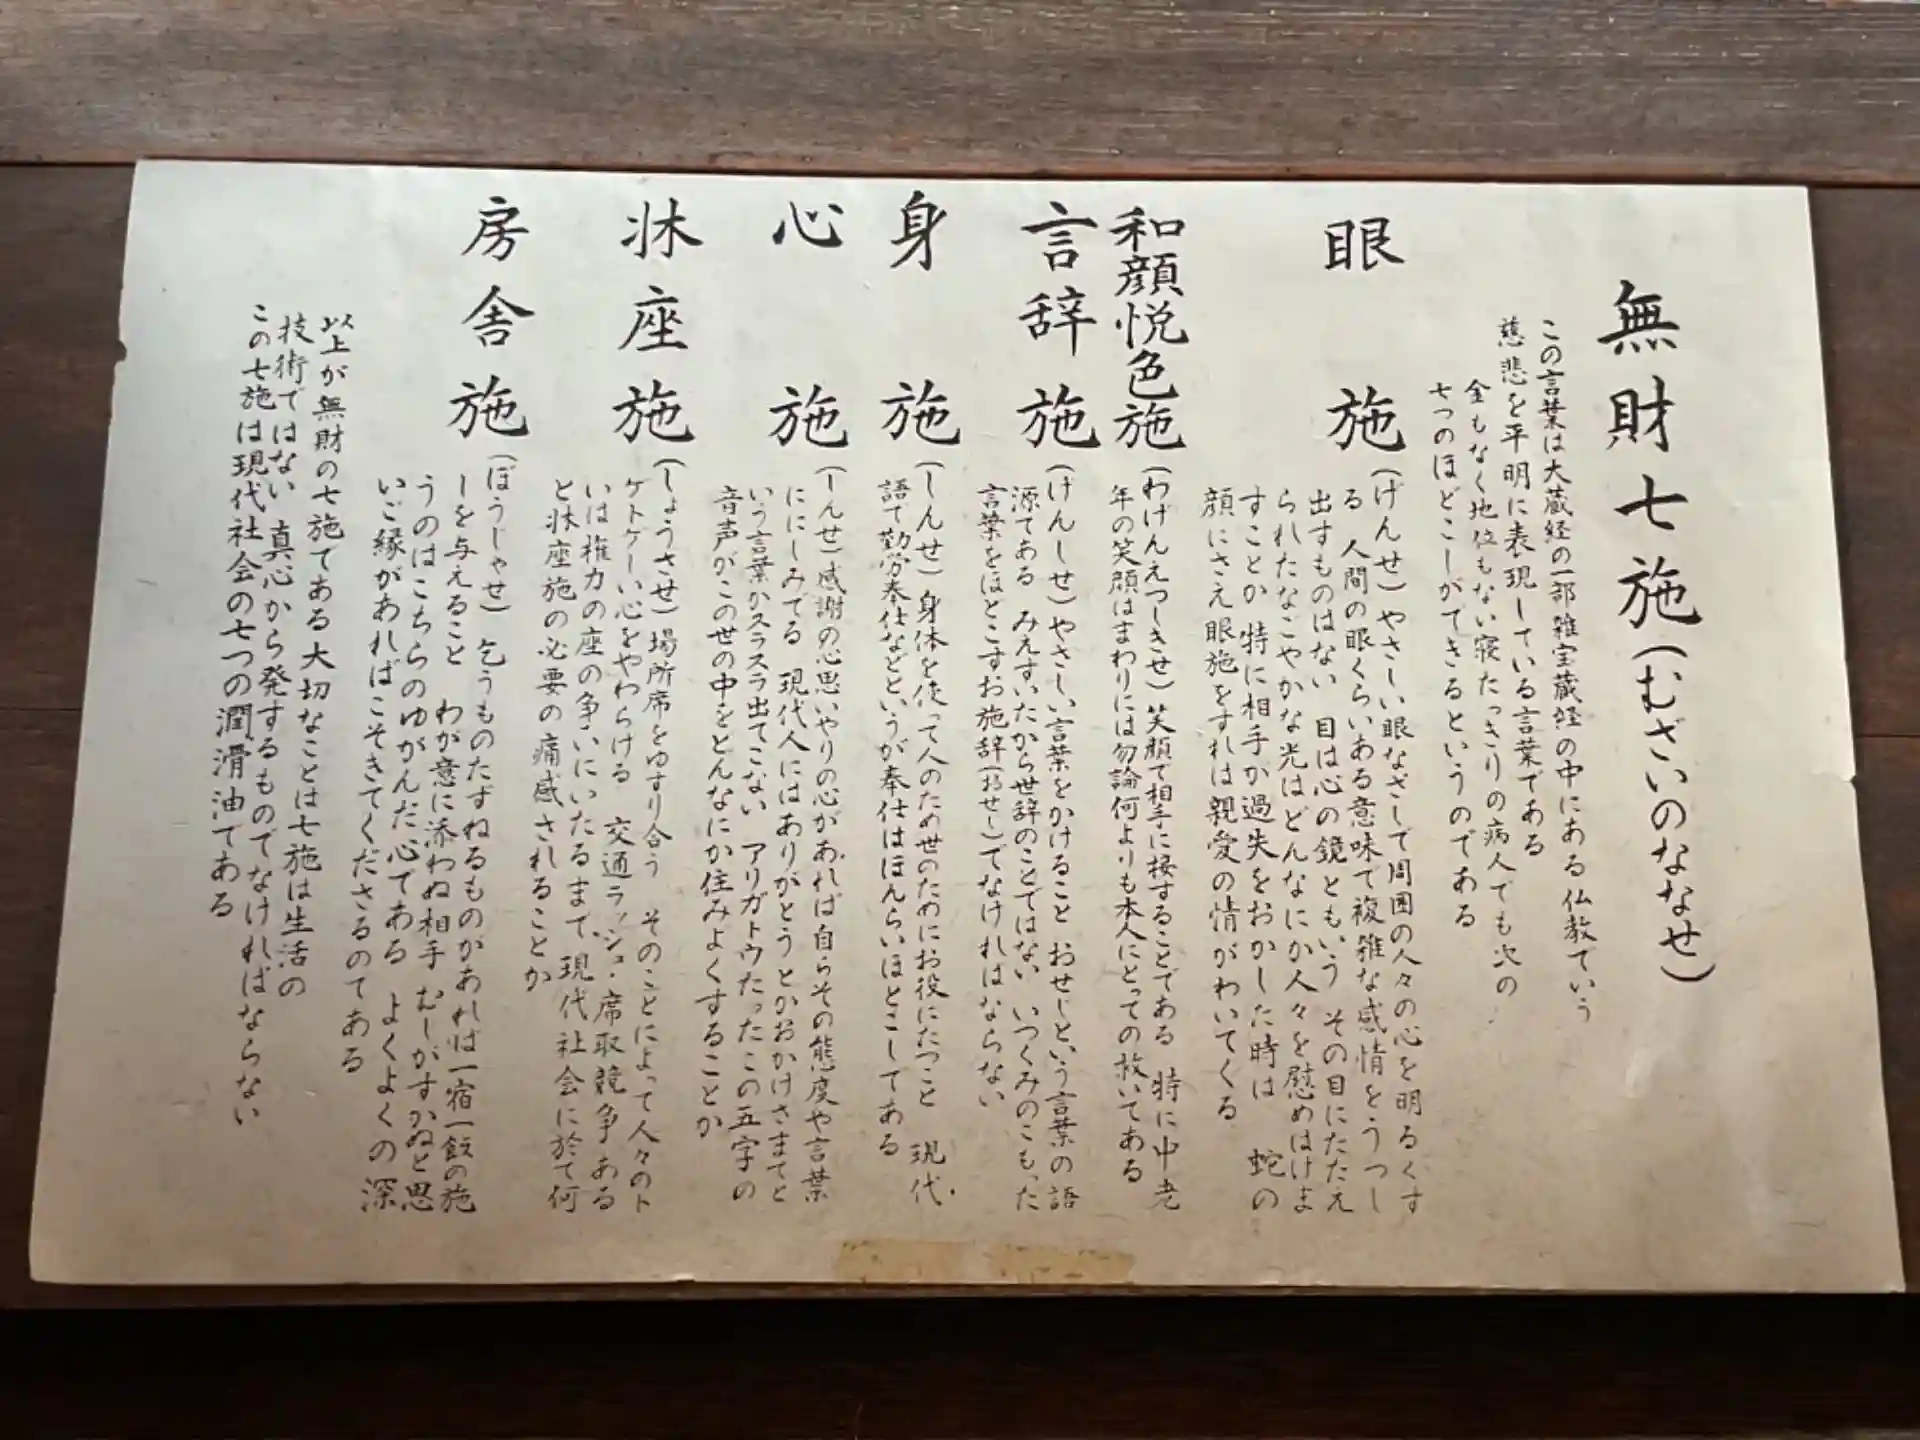 無財七施(むざいのななせ)
この言葉は大蔵経の一部雑宝蔵経の中にある 仏教でいう
慈悲を平明に表現している言葉である
金もなく地位もない寝たっきりの病人でも次の
七つのほどこしができるというのである
眼施(げんせ)やさしい眼なざしで周囲の人々の心を明るくす
る 人間の眼くらいある意味で複雑な感情をうつし
出すものはない 目は心の鏡ともいう その目にたたえ
られたなごやかな光はどんなにか人々を慰めはげま
すことか 特に相手が過失をおかした時は 蛇の
顔にさえ眼施をすれば親愛の情がわいてくる
和顔悦色施(わげんえつしきせ)笑顔で相手に接することである 特に中老
年の笑顔はまわりには勿論何よりも本人にとっての救いである
言辞施(げんしせ)やさしい言葉をかけること おせじという言葉の語
源である みえすいたから世辞のことではない いつくみのこもった
言葉をほどこすお施辞(おせし)でなければならない
身施(しんせ)身体を使って人のため世のためにお役にたつこと 現代
語で勤労奉仕などというが奉仕はほんらいほどこしである
心施(しんせ)感謝の心思いやりの心があれば自らその態度や言葉
ににじみでる 現代人にはありがとうとかおかげさまでと
いう言葉がスラスラ出てこない アリガトウたったこの五字の
音声がこの世の中をどんなにか住みよくすることか
牀座施(しょうさせ)場所席をゆずり合う そのことによって人々のト
ゲトゲしい心をやわらげる 交通ラッシュ・席取競争ある
いは権力の座の争いにいたるまで現代社会に於て何
と牀座施の必要の痛感されることか
房舎施(ぼうしゃせ) 乞うものたずねるものがあれば一宿一飯の施
しを与えること わが意に添わぬ相手 むしがすかぬと思
うのはこちらのゆがんだ心である よくよくの深
いご縁があればこそきてくださるのである
以上が無財の七施である大切なことは七施は生活の
技術ではない 真心から発するものでなければならない
この七施は現代社会の七つの潤滑油である